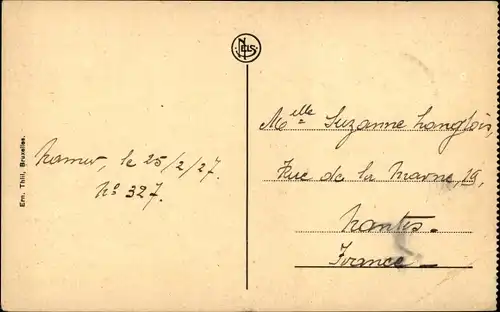 Ern. Thill, Bruxelles.
NELS
Namur, le 25/2/27.
N° 327.
Melle Suzanne Langlois,
Rue de la Marne, 19,
Nantes.
France